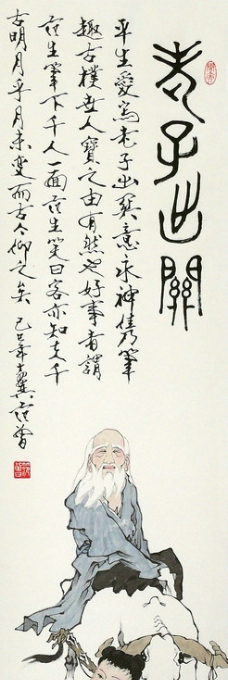 老子出關
平生愛寫老子出關意永神雋筆
趣古樸世人寶之由有然也好事者謂
范生筆下千人一面范生笑曰客亦知夫千
古明月乎月未變而古今仰之矣